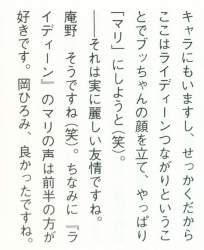 キャラにもいますし、せっかくだから
ここはライディーンつながりというこ
とでブッちゃんの顔を立て、やっぱり
「マリ」にしようと(笑)。
――それは実に麗しい友情ですね。
庵野　そうですね(笑)。ちなみに『ラ
イディーン』のマリの声は前半の方が
好きです。岡ひろみ、良かったですね。